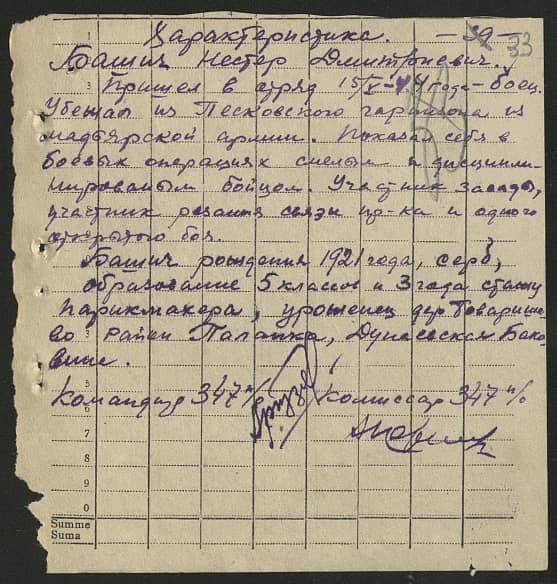 Характеристика. – 32 – 33
Башич Нестер Дмитриевич.
Пришел в отряд 15/V-44 года – боец.
Убежал из Песковского гарнизона из
мадьярской армии. Показал себя в
боевых операциях смелым и дисципли-
нированым бойцом. Участник засады,
участник резания связи пр-ка и одного
открытого боя.
Башич рождения 1921 года, серб,
образование 5 классов и 3 года
парикмахера, уроженец дер Товарише-
во район Паланка, Дунавская Бано-
вина.
Командир 347 п/о Комиссар 347 п/о
1
3
3
5
6
7
8
9
0
Summe
Suma